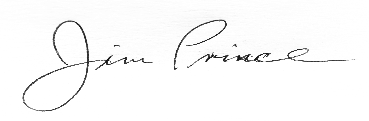 Jim Prince